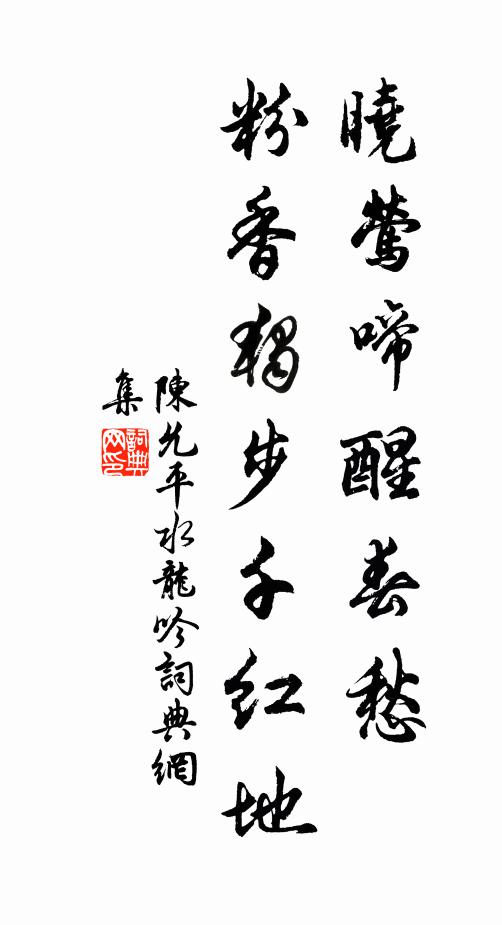 曉鶯啼醒春愁
粉香獨步千紅地
陳允平水龍吟詞典網
集
詞典
网印